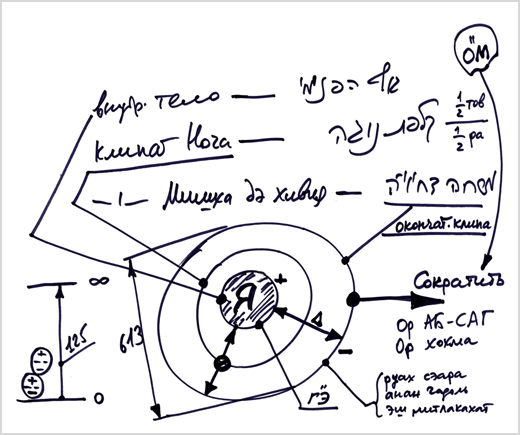 ÖМ
внутр. тело — גוף הפנימי
клипат Нога — קליפת נוגה 1/2 тов 1/2 ра
—|— Мишха дэ хивия — משחה דחיויה
окончат. клипа
Я
+
Δ
–
Сократить
Ор АБ-САГ
Ор хокма
∞
125
0
613
гӬ
руах сэара
анан гадоль
эш митлакахат